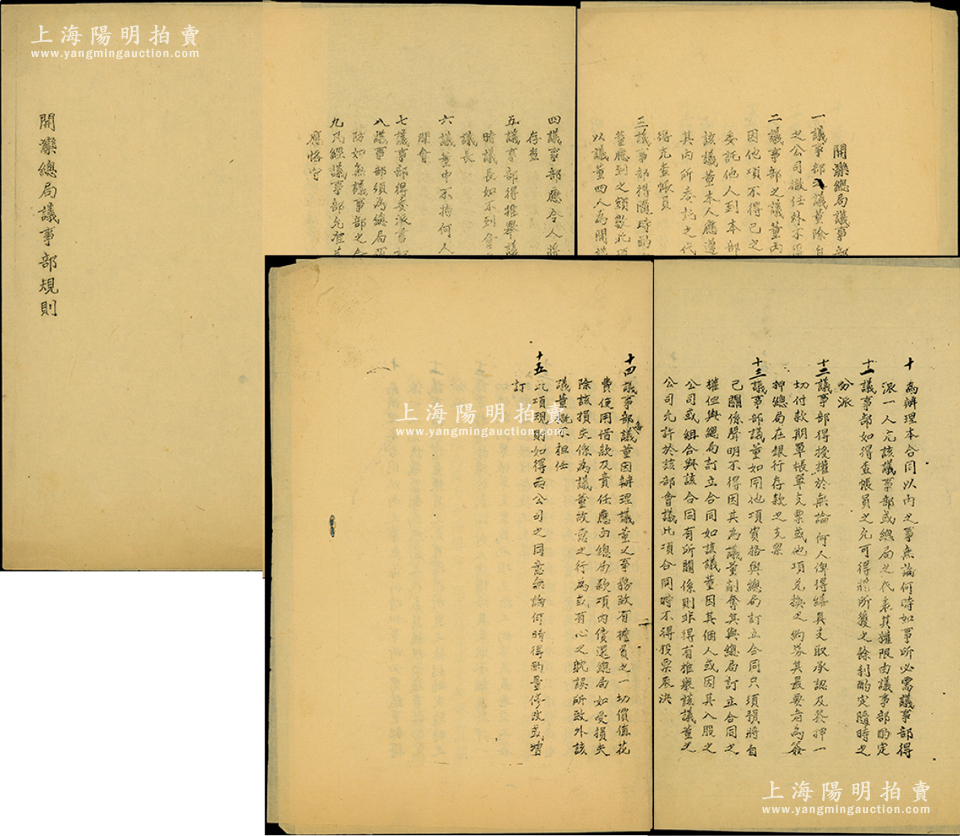 上海陽明拍賣
www.yangmingauction.com
開灤總局議事部規則
上海陽明拍賣
www.yangmingauction.com
開灤總局議事部
一議事部之議董除自
之公司撤任外不得
二議事部之議董丙
因他項不得已之
委託他人到本部
該議董本人應遵
其丙所委托之代
格充查帳員
三議事部得隨時酌
董應到之額數此項
以議董四人為開議
四議事部應令人將
存查
五議事部得推舉議
時議長如不到會
議長
六議董中不拘何人
開會
七議事部得委派書記
八議事部須為總局
防如無議事部之
九凡經議事部允准
應恪守
十為辦理本合同以內之事無論何時如事所必需議事部得
派一人充該議事部或總局之代表其權限由議事部酌定
十一議事部如得查帳員之允可得將所獲之餘利酌定隨時之
分派
十二議事部得授權於無論何人俾得繕具支取承認及簽押一
切付款期單帳單支票或他項兌換之納券其最要者為簽
押總局在銀行存款之支票
十三議事部議董如用他項資格與總局訂立合同只須將自
己關係聲明不得因其為議董削奪其與總局訂立合同之
權但與總局訂立合同如該議董因其個人或因其入股之
公司或組合與該合同有所關係則非得有推舉該議董之
公司允許於該部會議此項合同時不得投票表決
十四議事部議董因辦理議董之事務致有擔負之一切償值花
費使用借款及責任應由總局款項內償還總局如受損失
除該損失係為議董故意之行為或有心之耽誤所致外該
議董概不担任
十五此項規則如得兩公司之同意無論何時得酌量修改或增
訂
二
上海陽明拍賣
www.yangmingauction.com
上海陽明拍賣
www.yangmingauction.com